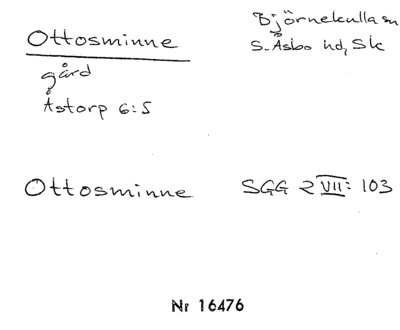 Ottosminne
Björnekulla sn
S. Åsbo hd, Sk
gård
Åstorp 6:5
Ottosminne SGG 2 VII: 103
Nr 16476